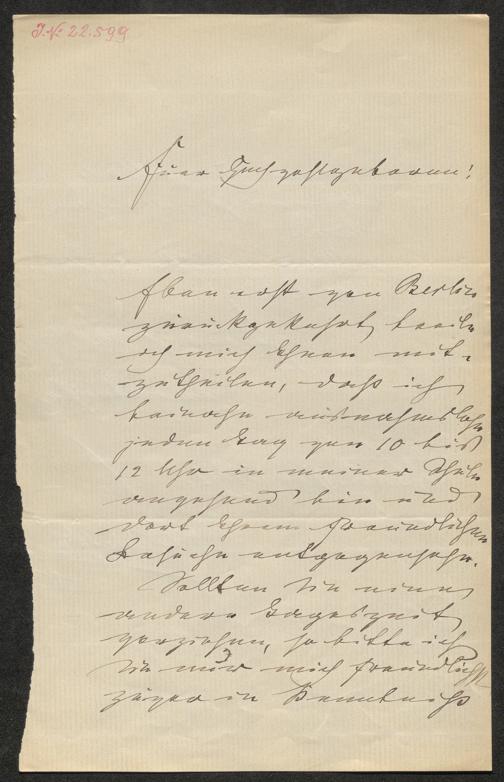 J.N. 22.599
Euer Hochwohlgeboren!
Eben erst von Berlin
zurückgekehrt, beeile
ich mich Ihnen mit-
zutheilen, daß ich
beinahe ausnahmslos
jeden Tag von 10 bis
12 Uhr in meiner Schule
angehend bin und
dort Ihrem freundlichen
Besuche entgegensehe.
Sollten Sie eine
andere Tageszeit
vorziehen, so bitte ich
Sie nur mich freundlichst
zuvor in Kenntniß